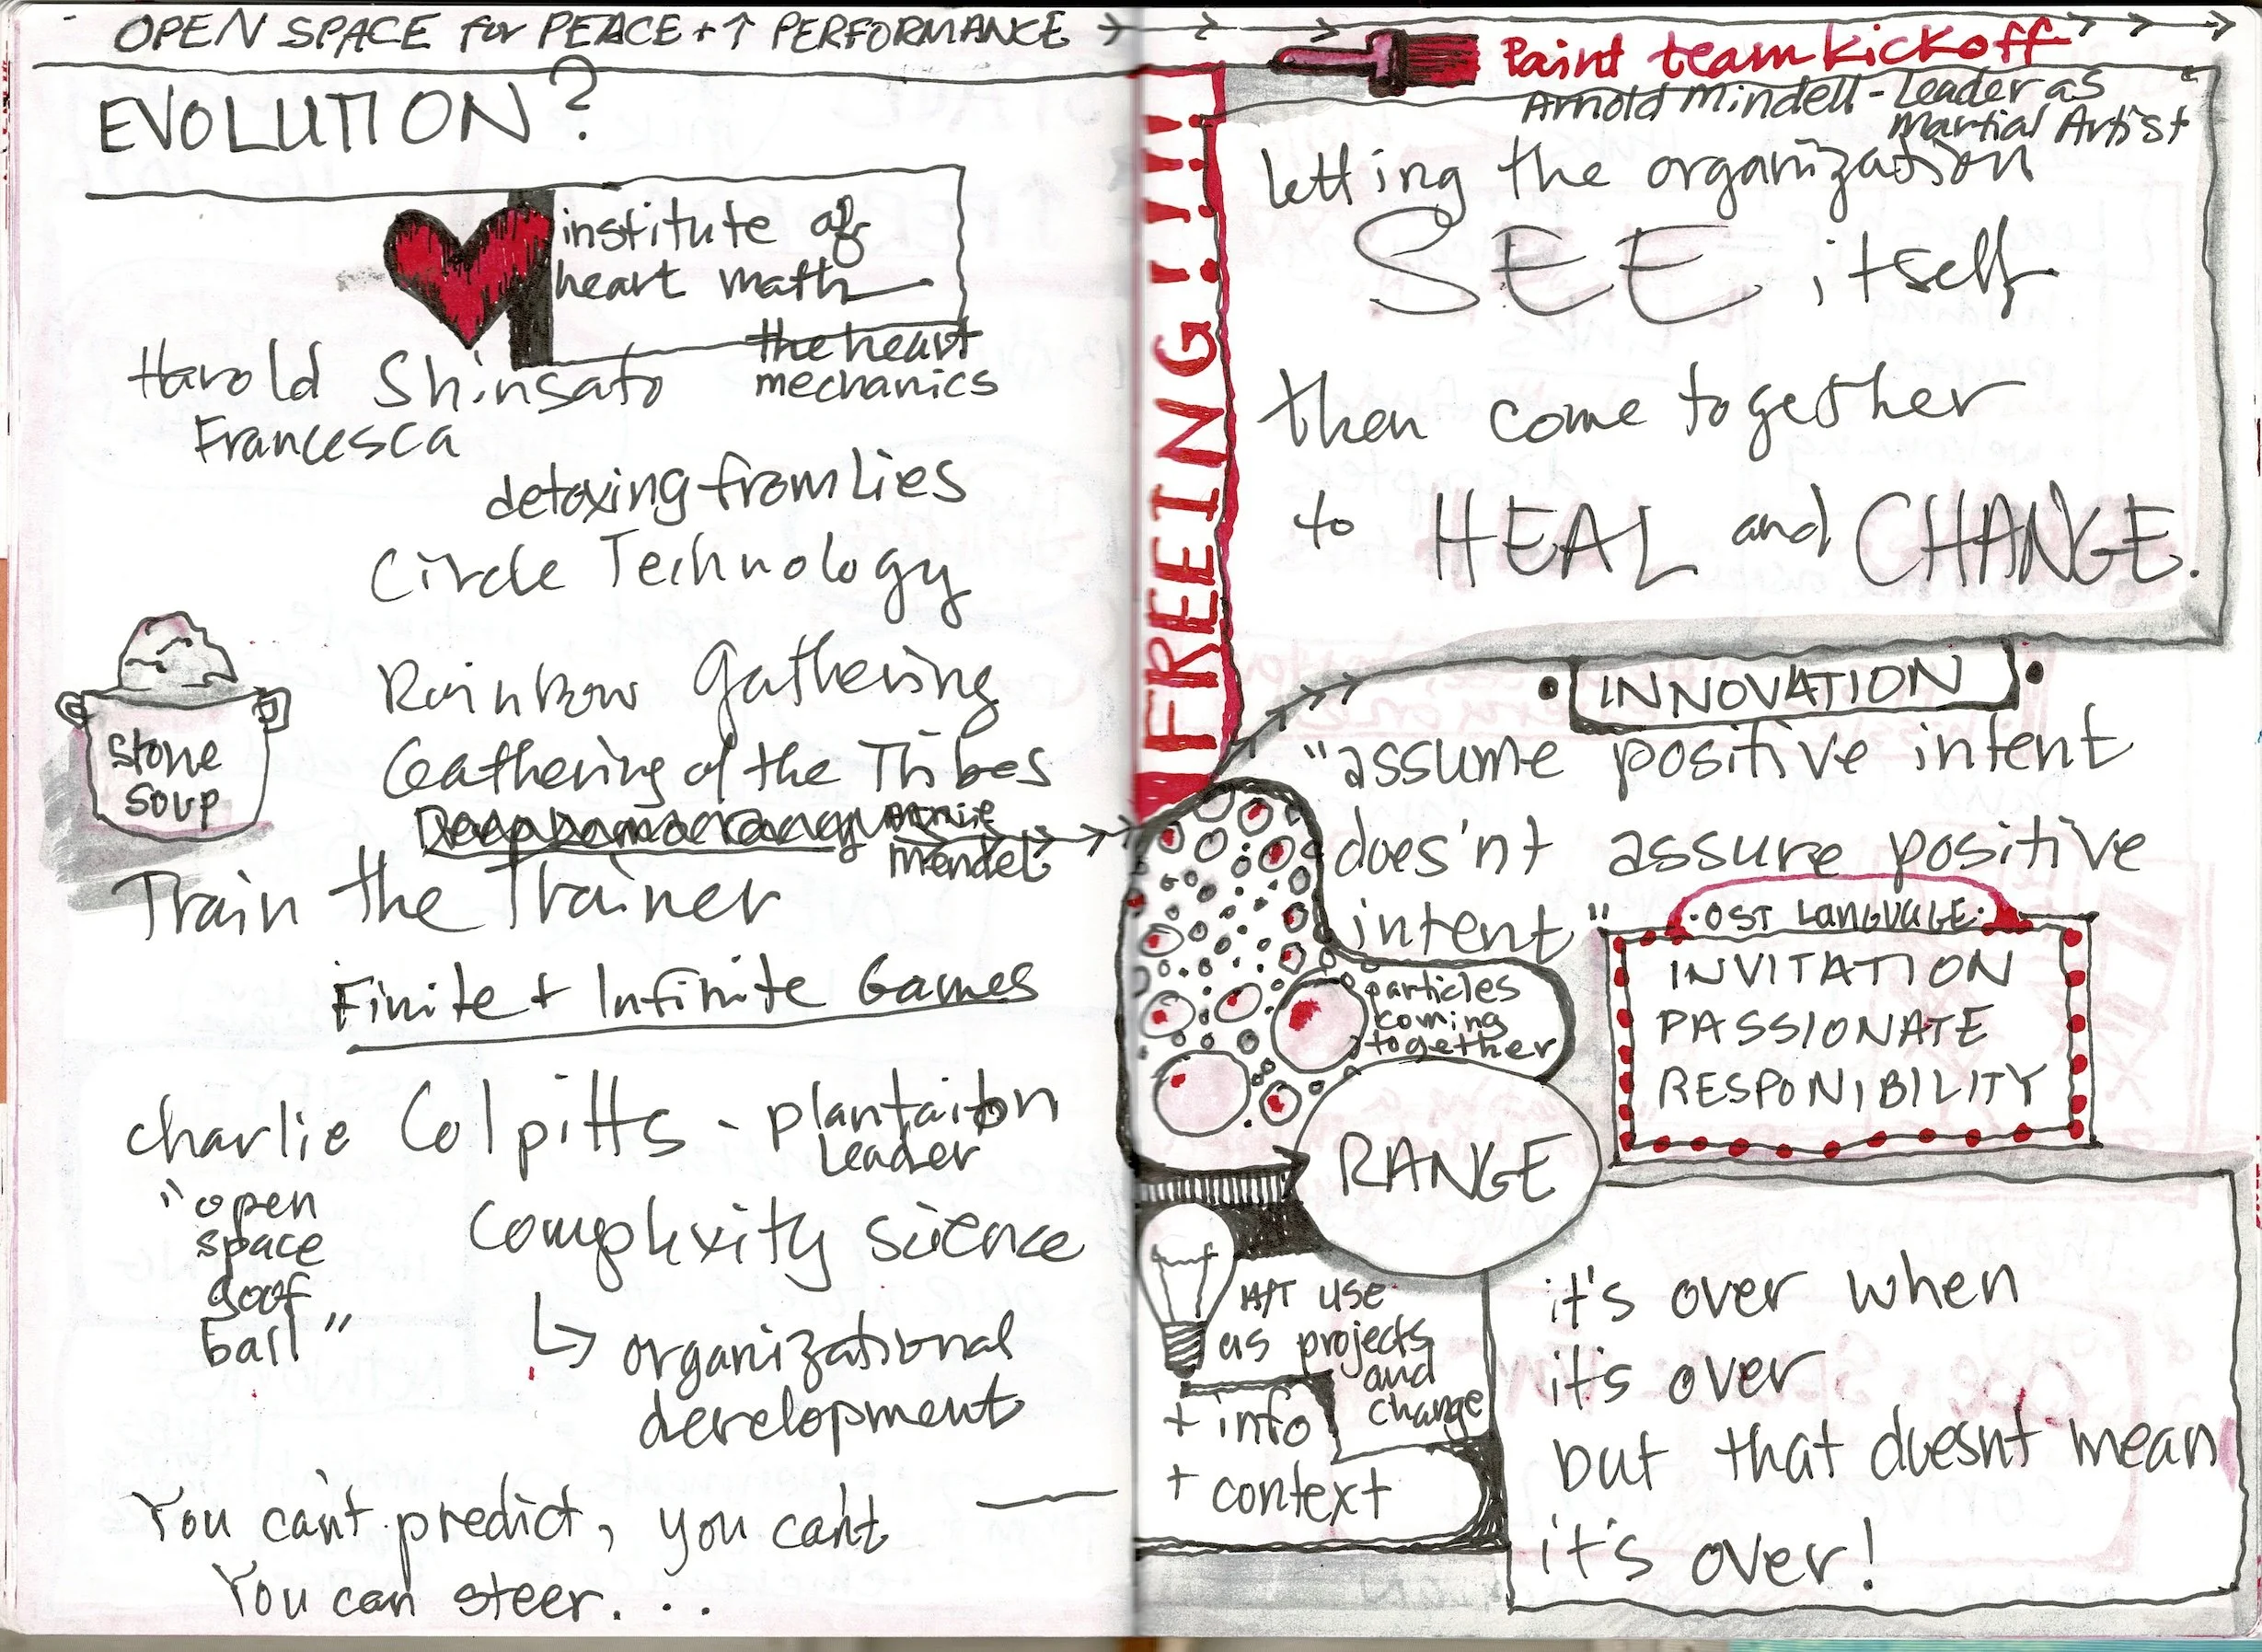 OPEN SPACE for PEACE + ↑ PERFORMANCE
EVOLUTION?
institute of
heart math
the heart
mechanics
Harold Shinsato
Francesca
detoxing from lies
Circle Technology
Rainbow Gathering
Gathering of the Tribes
stone
soup
Arnie
mendel
Train the Trainer
Finite + Infinite Games
Charlie Colpitts - plantaiton
Leader
"open
space
goof
ball"
Complexity science
↳ organizational
development
You can't predict, you can't
You can steer...
FREEING!!!!
Paint team kickoff
Arnold Mindell - Leader as
Martial Artist
letting the organization
SEE itself
then come together
to HEAL and CHANGE.
INNOVATION
"assume positive intent
does'nt assure positive
intent"
OST LANGUAGE
INVITATION
PASSIONATE
RESPONIBILITY
particles
coming
together
RANGE
use
as projects
and
change
+ info
+ context
it's over when
it's over
but that doesn't mean
it's over!